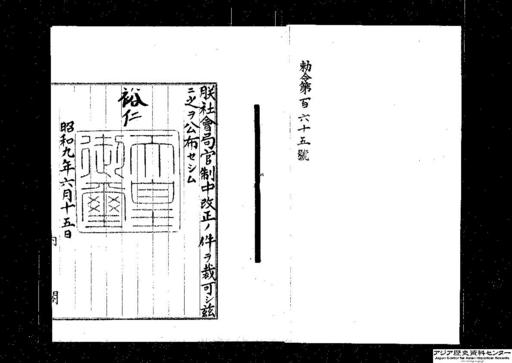 勅令第一百六十五號
朕社會局官制中改正ノ件ヲ裁可シ茲
ニ之ヲ公布セシム
裕仁
天皇
御璽
昭和九年六月十五日
内閣
アジア歴史資料センター
Japan Center for Asian Historical Records